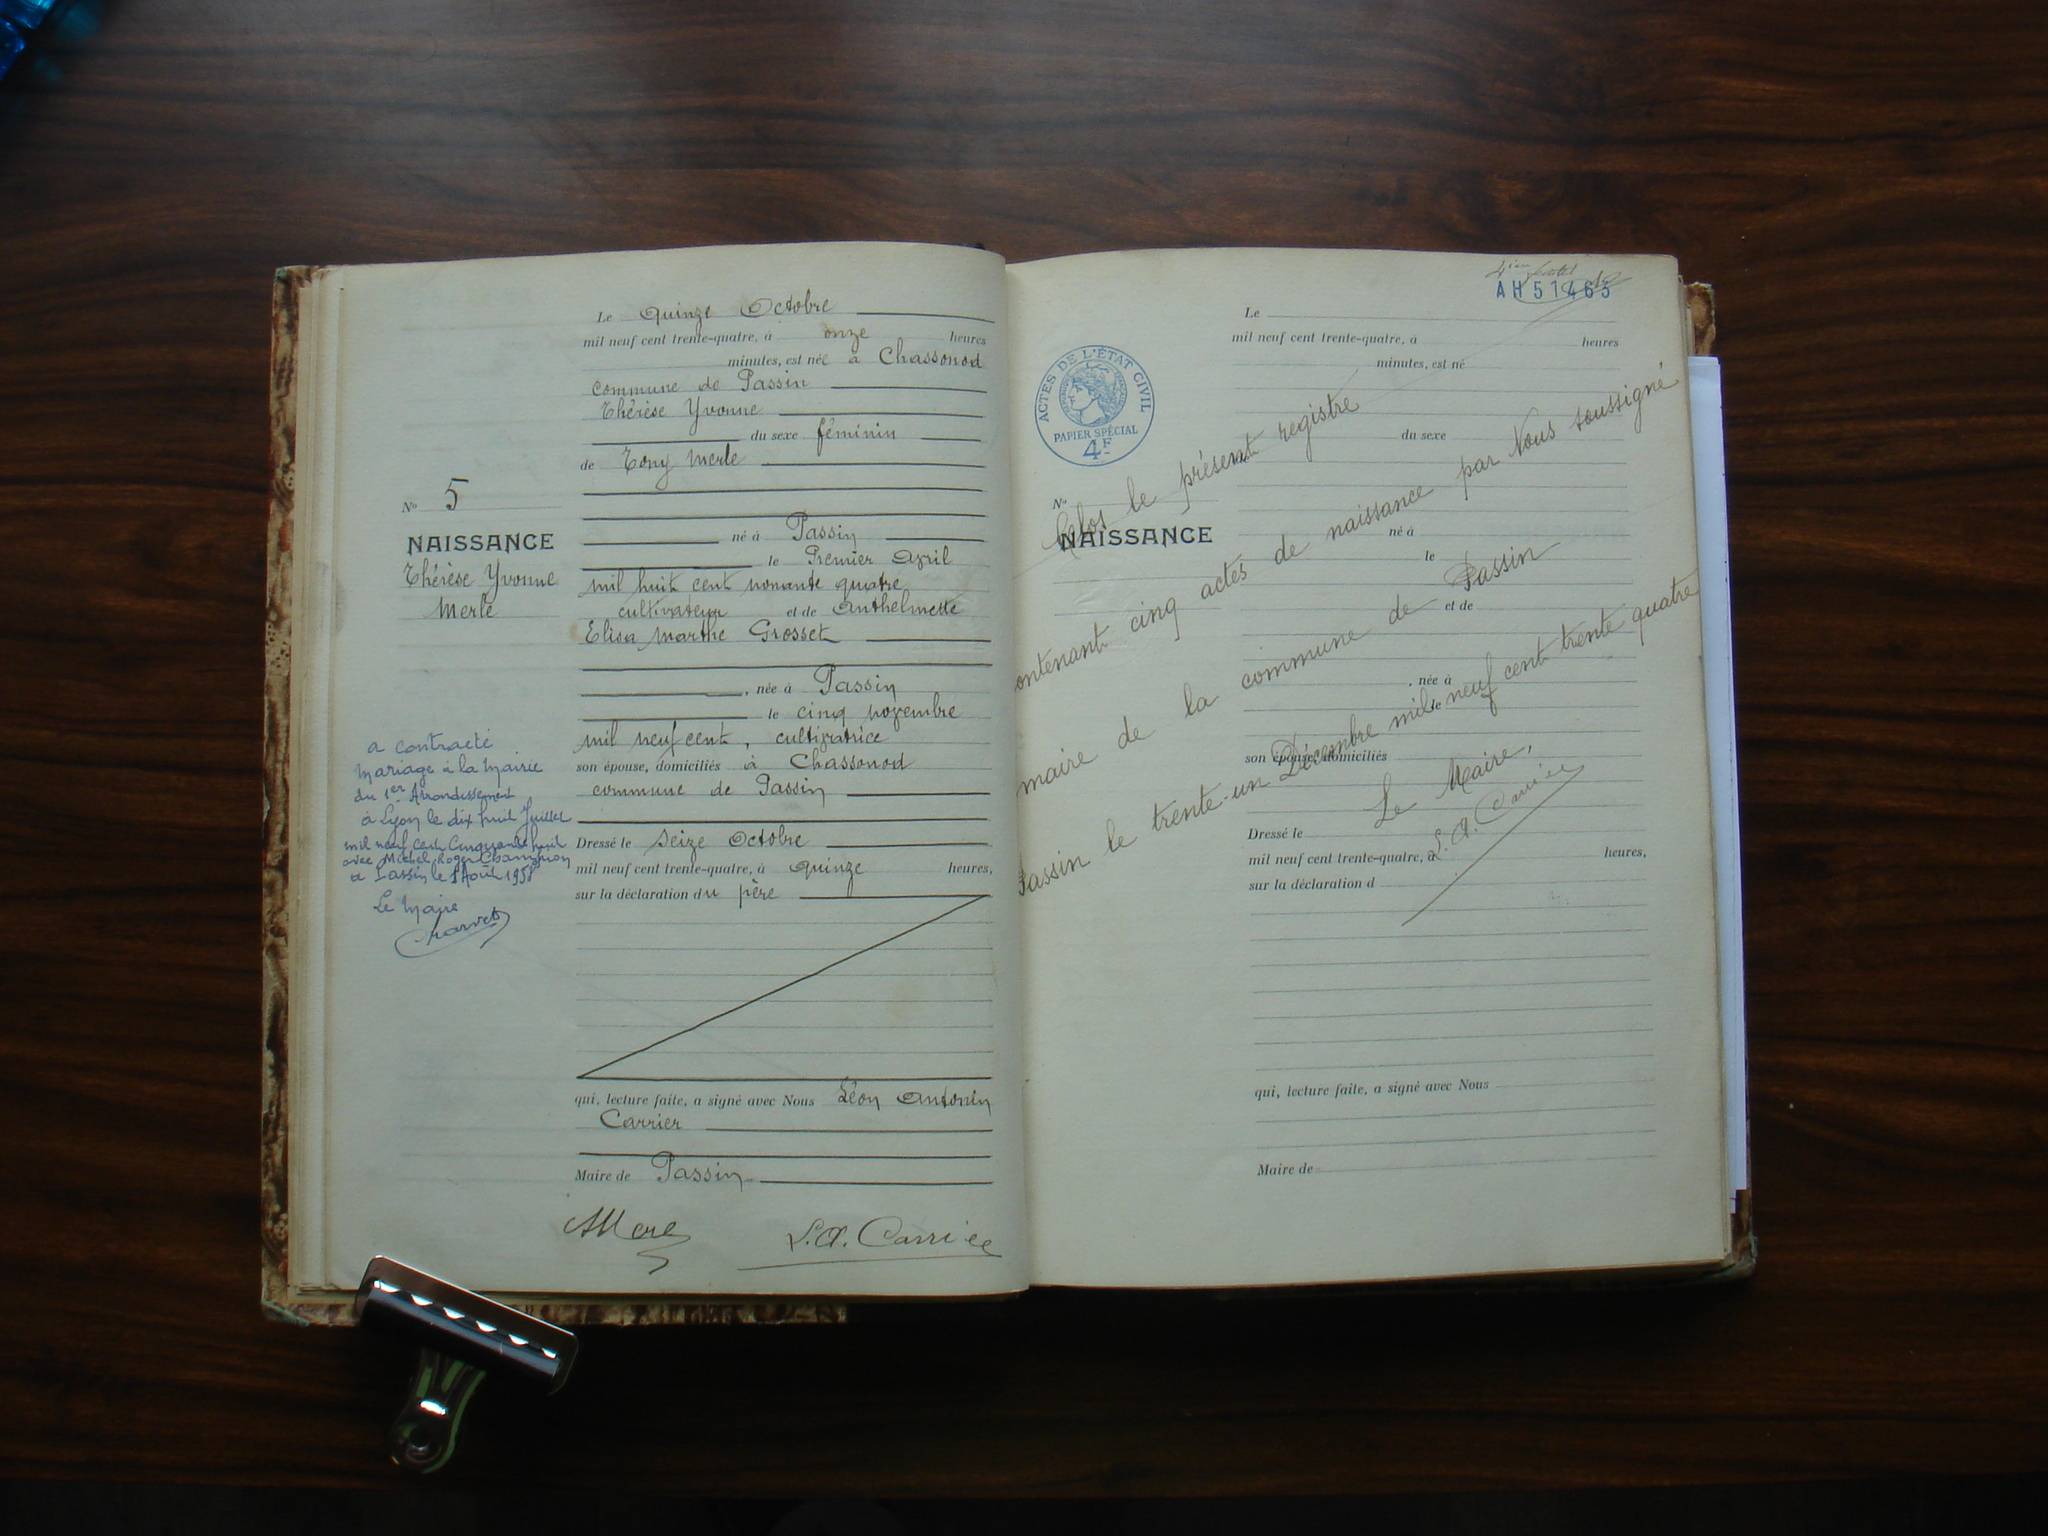 Le Quinze Octobre
mil neuf cent trente-quatre, à onze heures
minutes, est née à Chassonod
commune de Passin
Thérèse Yvonne
du sexe féminin
de Tony Merle
né à Passin
le Premier Avril
mil huit cent nonante quatre
cultivateur et de Anthelmette
Elisa Marthe Grosset
, née à Passin
le cinq novembre
mil neuf cent, cultivatrice
son épouse, domiciliés à Chassonod
commune de Passin
Dressé le seize Octobre
mil neuf cent trente-quatre, à quinze heures,
sur la déclaration du père
qui, lecture faite, a signé avec Nous Léon Antonin
Carrier
Maire de Passin
L. A. Carrier
No 5
NAISSANCE
Thérèse Yvonne
Merle
a contracté
mariage à la Mairie
du 1er Arrondissement
à Lyon le dix huit Juillet
mil neuf cent Cinquante huit
avec Michel Roger Champion
à Passin le 1 Août 1958
Le Maire
AH51465
ACTES DE L'ÉTAT CIVIL
PAPIER SPÉCIAL
4F
Le
mil neuf cent trente-quatre, à heures
minutes, est né
du sexe
No
NAISSANCE
né à
le
et de
, née à
le
son épouse, domiciliés
Dressé le
mil neuf cent trente-quatre, à heures,
sur la déclaration d
qui, lecture faite, a signé avec Nous
Maire de
Clos le présent registre
contenant cinq actes de naissance par Nous soussigné
maire de la commune de Passin
Passin le trente-un Décembre mil neuf cent trente quatre
Le Maire,
L. A. Carrier